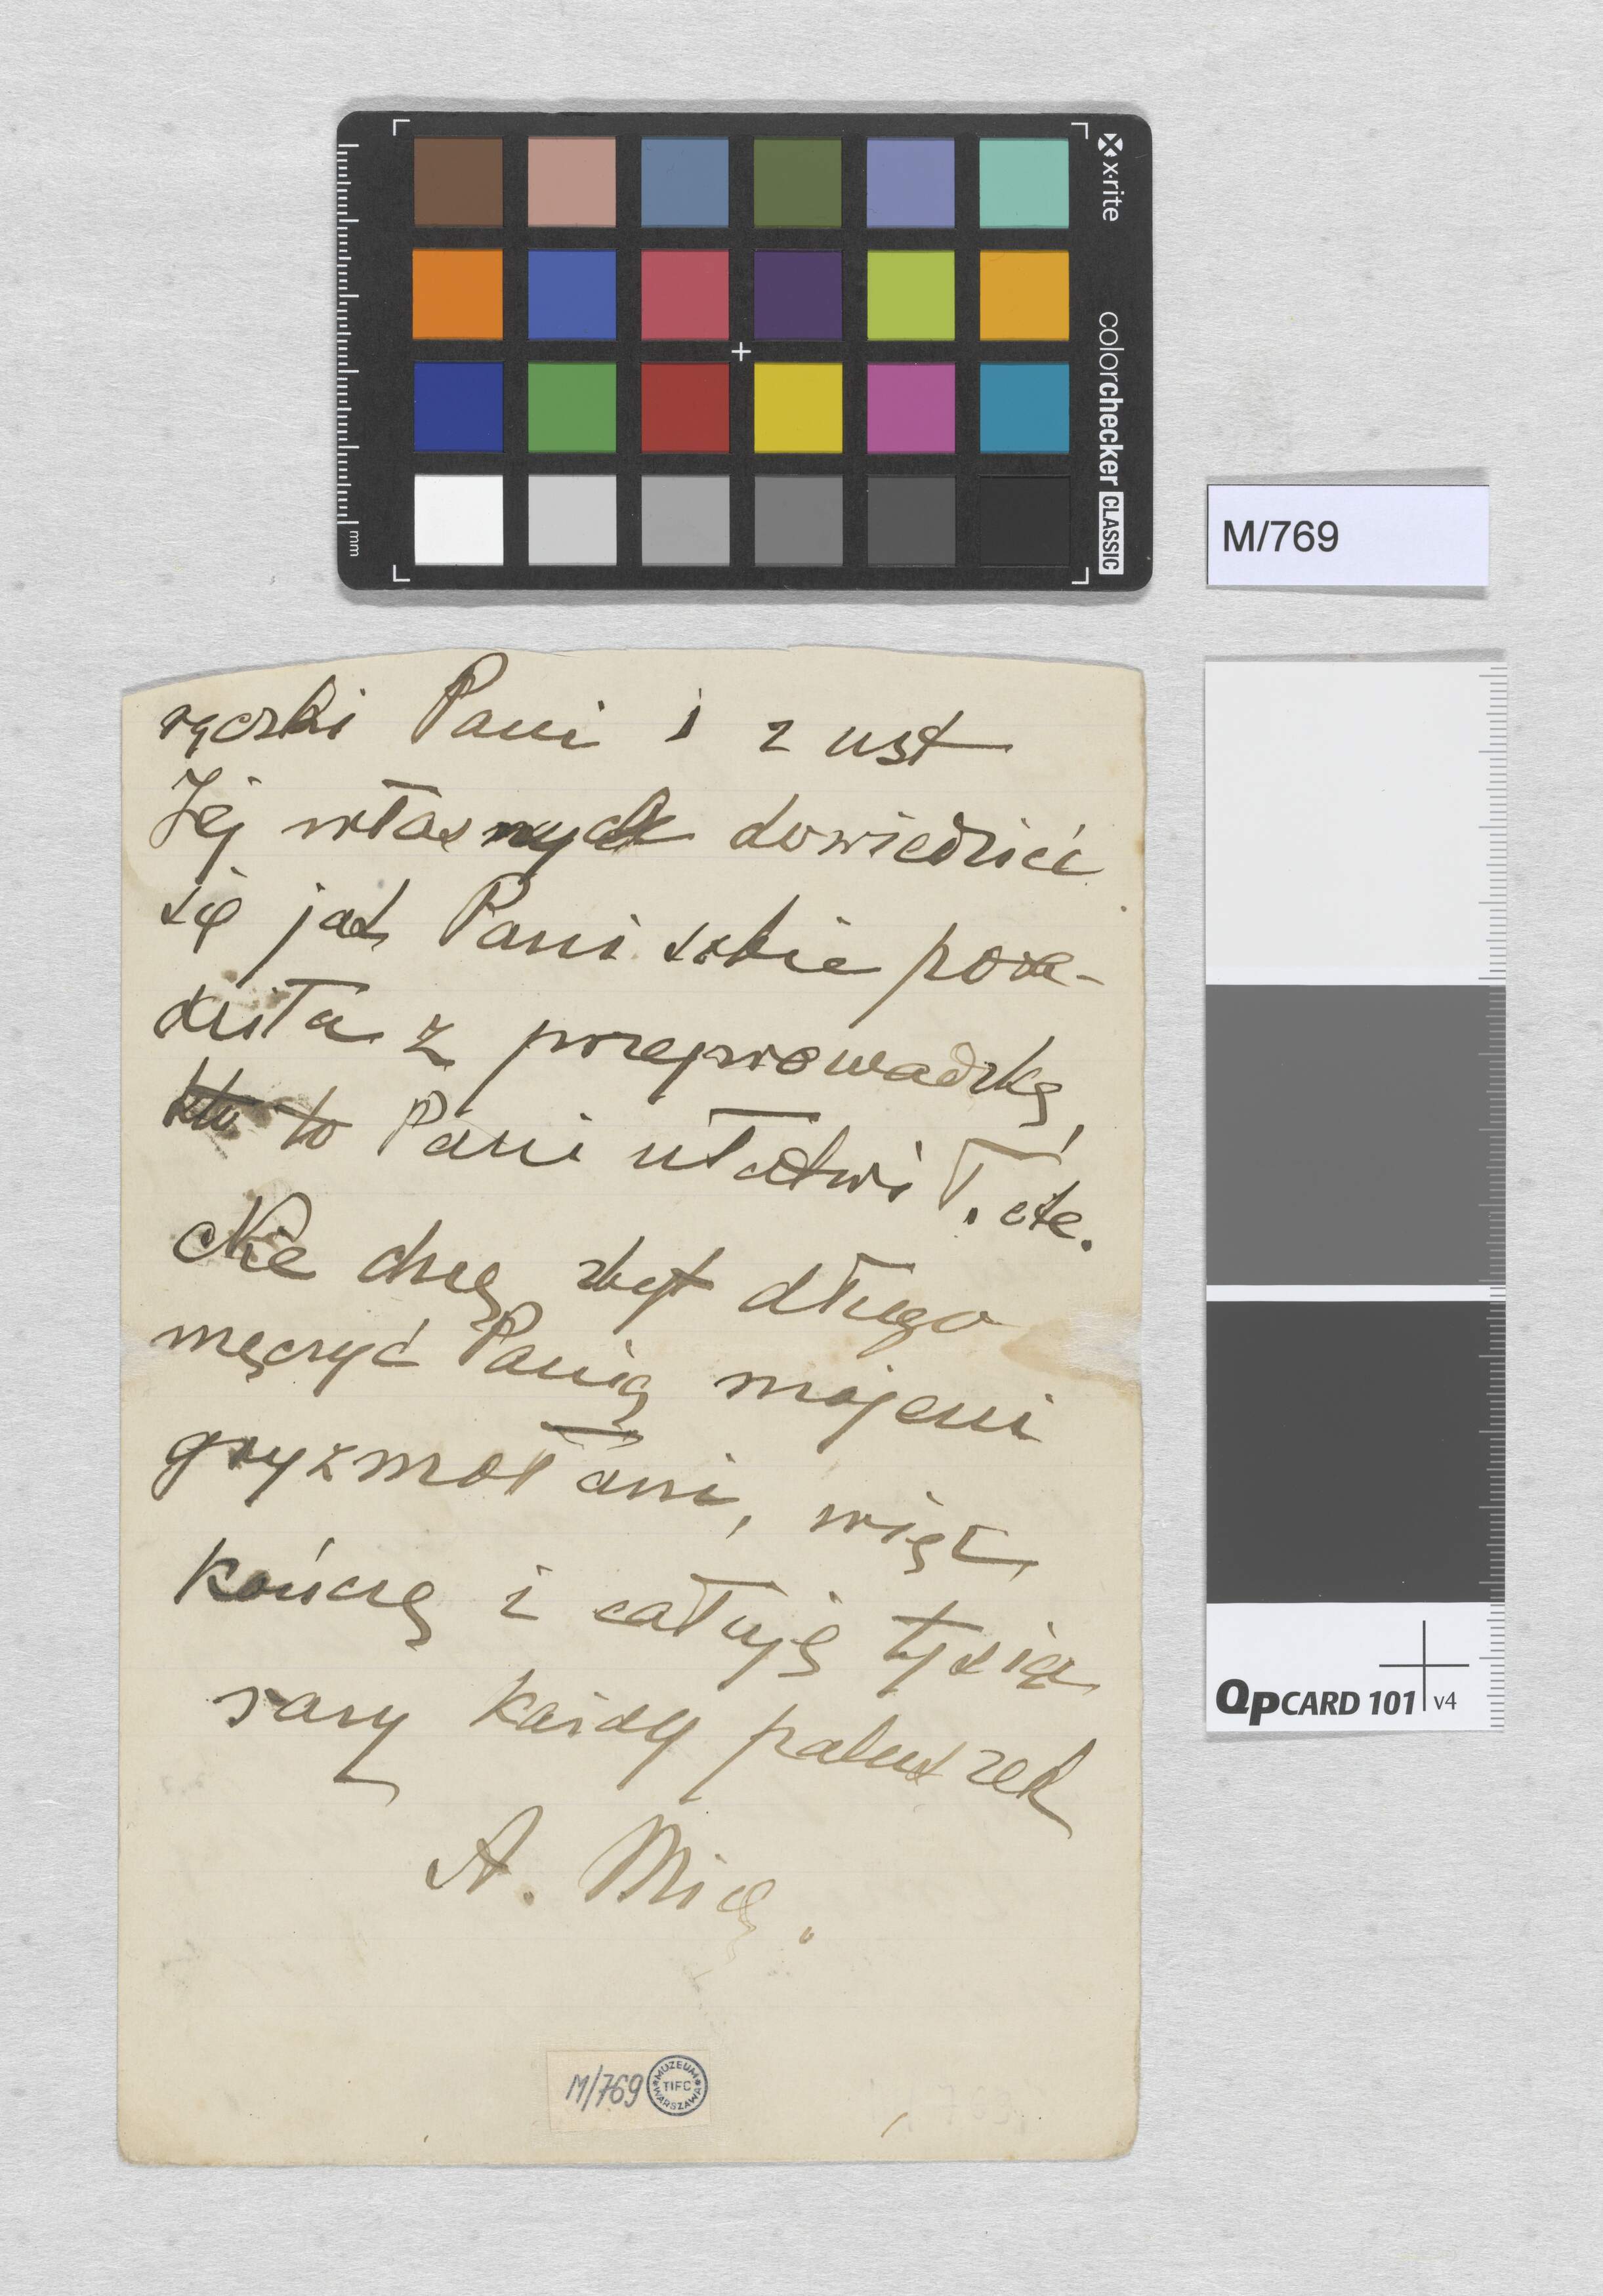 x-rite
colorchecker CLASSIC
mm
M/769
rączki Pani i z ust
Jej własnych dowiedzieć
się jak Pani sobie pora-
dziła z przeprowadzką,
kto to Pani ułatwił, etc.
Nie chcę zbyt długo
męczyć Panią mojemi
gryzmołami, więc
kończę i całuję tysią
razy każdy paluszek
A. Mic.
M/769
MUZEUM TIFC WARSZAWA
QpCARD 101 v4